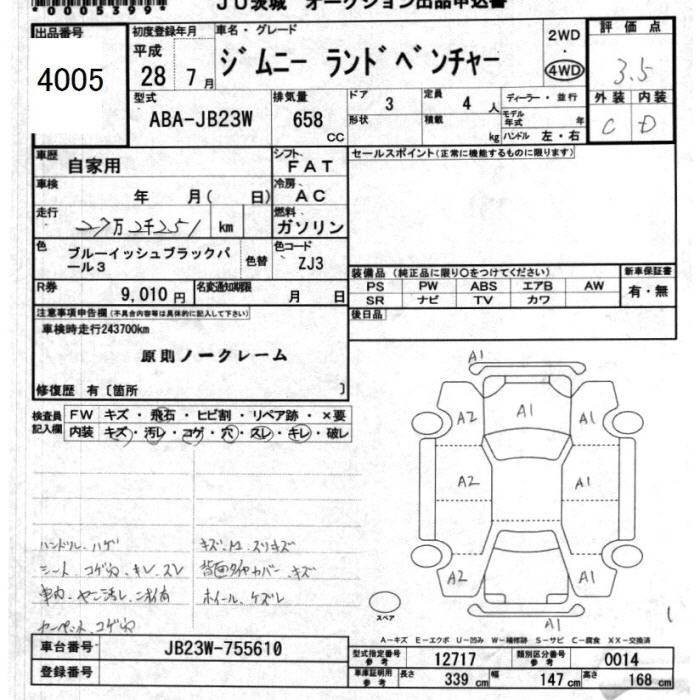 *0005399*
JU茨城 オークション出品申込書
出品番号 4005
初度登録年月 平成 28年 7月
車名・グレード ジムニー ランドベンチャー
2WD ・ 4WD
評価点 3.5
型式 ABA-JB23W
排気量 658 CC
ドア 3
定員 4 人
形状
積載 kg
ディーラー・並行
モデル年式 年
ハンドル 左・右
外装 C
内装 D
車歴 自家用
シフト FAT
セールスポイント(正常に機能するものに限ります)
車検 年 月( 日)
冷房 AC
走行 27万2千251 km
燃料 ガソリン
色 ブルーイッシュブラックパール3
色替
色コード ZJ3
装備品(純正品に限り〇をつけてください)
新車保証書
PS PW ABS エアB AW
SR ナビ TV カワ
有・無
R券 9,010 円
名変通知期限 月 日
後日品
注意事項申告欄(不具合内容等は具体的に記入して下さい)
車検時走行243700km
原則ノークレーム
修復歴 有〔箇所 〕
検査員記入欄
FW キズ・飛石・ヒビ割・リペア跡・×要
内装 キズ・汚レ・コゲ・穴・スレ・キレ・破レ
A1
A2 A1 A1
A2 A1
A2 A1
A1
ハンドル ハゲ
キズ、凹 スリキズ
シート コゲ穴、キレ、スレ
背面タイヤカバー キズ
車内 ヤニ汚レ
ホイール、ケズレ
カーペット コゲ穴
スペア
A-キズ E-エクボ U-凹み W-補修跡 S-サビ C-腐食 XX-交換済
車台番号 JB23W-755610
型式指定番号 参考 12717
類別区分番号 参考 0014
登録番号
車庫証明用 参考 長さ 339 cm 幅 147 cm 高さ 168 cm